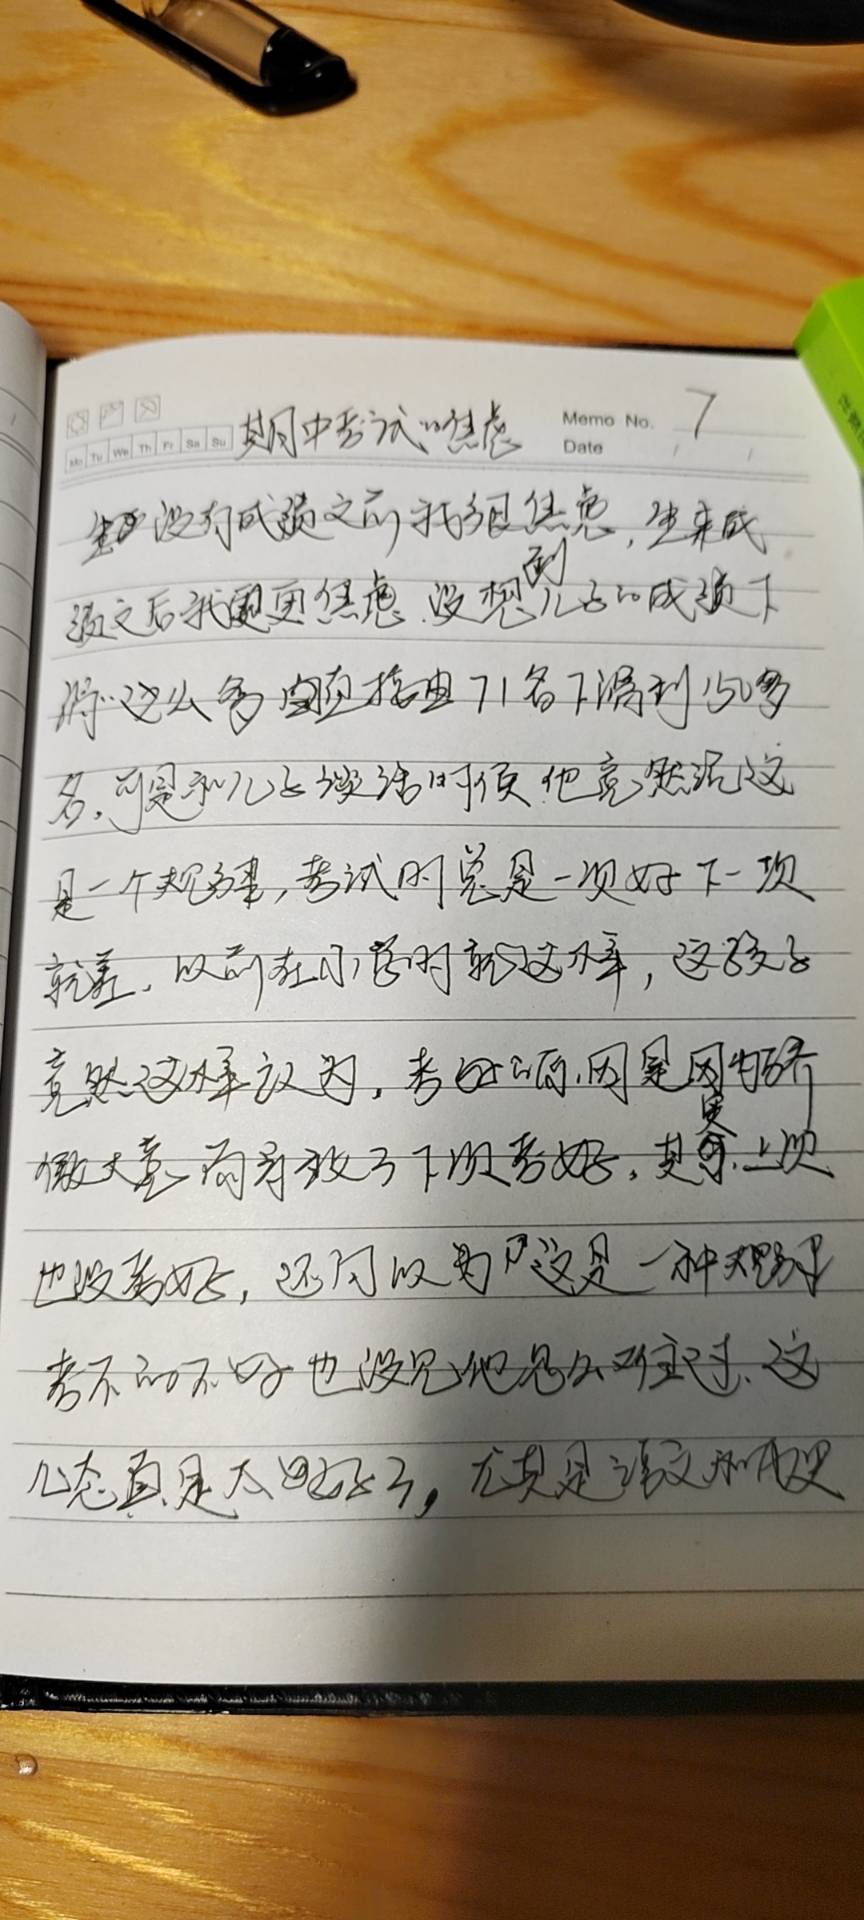 期中考试的焦虑 Memo No. 7
Mo Tu We Th Fr Sa Su Date / /
没有成绩之前我很焦虑,出来成
绩之后我更焦虑.没想到儿子的成绩下
滑这么多直接由71名下滑到150多
名.可是和儿子谈话时候他竟然说这
是一个规律,考试时总是一次好下一次
就差.以前在小学时就这样,这孩子
竟然这样认为,考好的原因是因为骄
傲大意而导致了下次考好,其实上次
也没考好,还可以为这是一种规律
考不的不好也没见他怎么难过.这
心态真是太好了,尤其是语文和历史